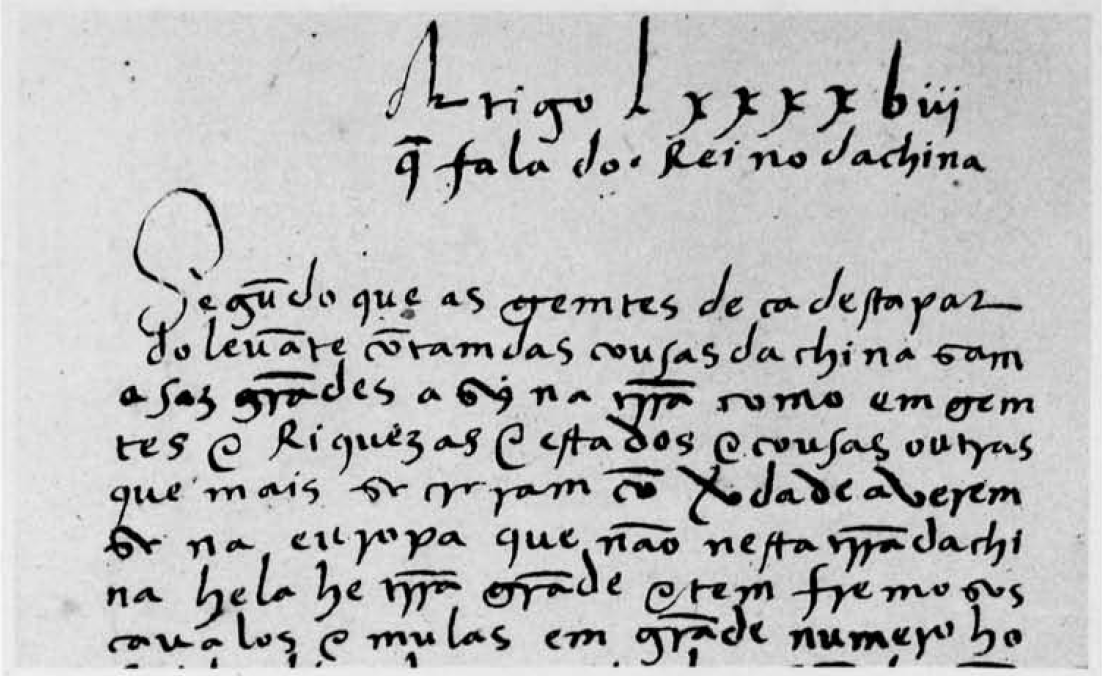 Artigo Lxxxxbiij
q̃ fala do. Reino dachina
Segũdo que as gemtes de ca destapar
do levãte cõtam das cousas da china sam
asaz grãdes a sỹ na trr̃a como em gem
tes e Riquezas e estados e cousas outras
que mais se cryram cõ v̾dade averem
se na europa que não nesta trr̃a dachi
na hela he trr̃a grãde e tem fremosos
cavalos e mulas em grãde numero ho